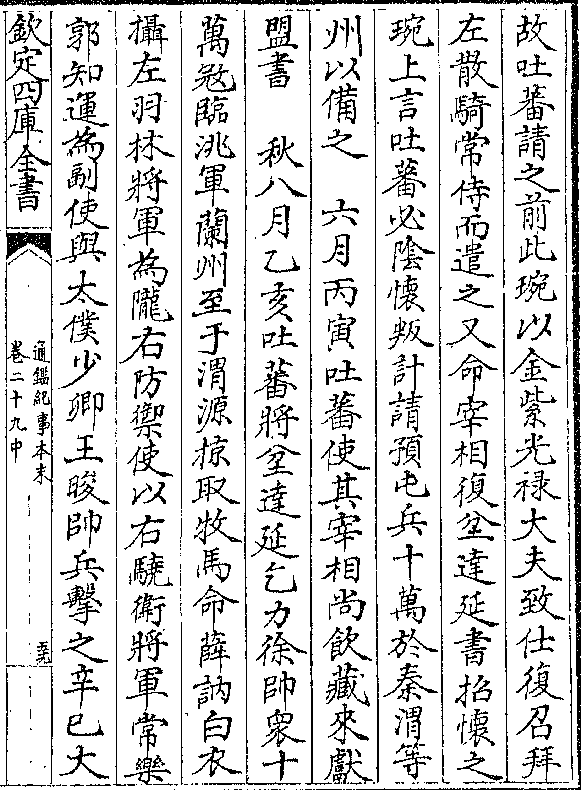 故吐蕃請之前此琬以金紫光禄大夫致仕復召拜
左散騎常侍而遣之又命宰相復坌達延書招懷之
琬上言吐蕃必陰懷叛計請預屯兵十萬於秦渭等
州以備之　六月丙寅吐蕃使其宰相尚飲藏來獻
盟書　秋八月乙亥吐蕃將坌達延乞力徐帥衆十
萬宼臨洮軍蘭州至于渭源掠取牧馬命薛訥白衣
攝左羽林將軍為隴右防禦使以右驍衛將軍常樂
郭知運為副使與太僕少卿王晙帥兵擊之辛巳大
欽定四庫全書
通鑑紀事本末
卷二十九中